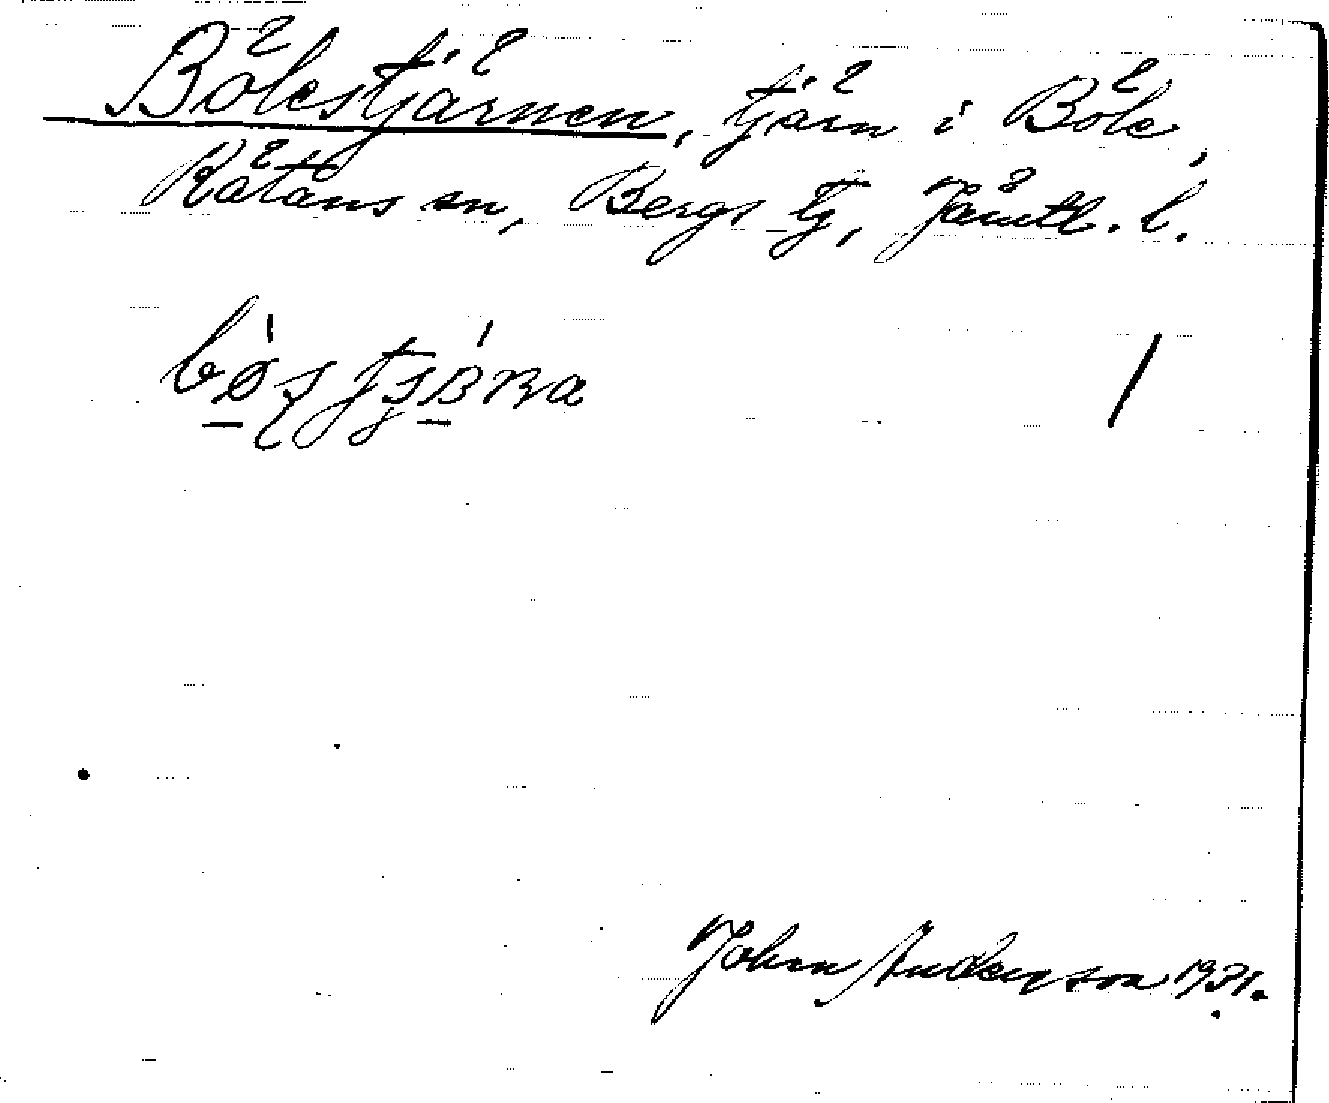 Bölestjärnen, tjärn i Böle,
Rätans sn, Bergs tg, Jämtl. l.
John Anderson 1931.